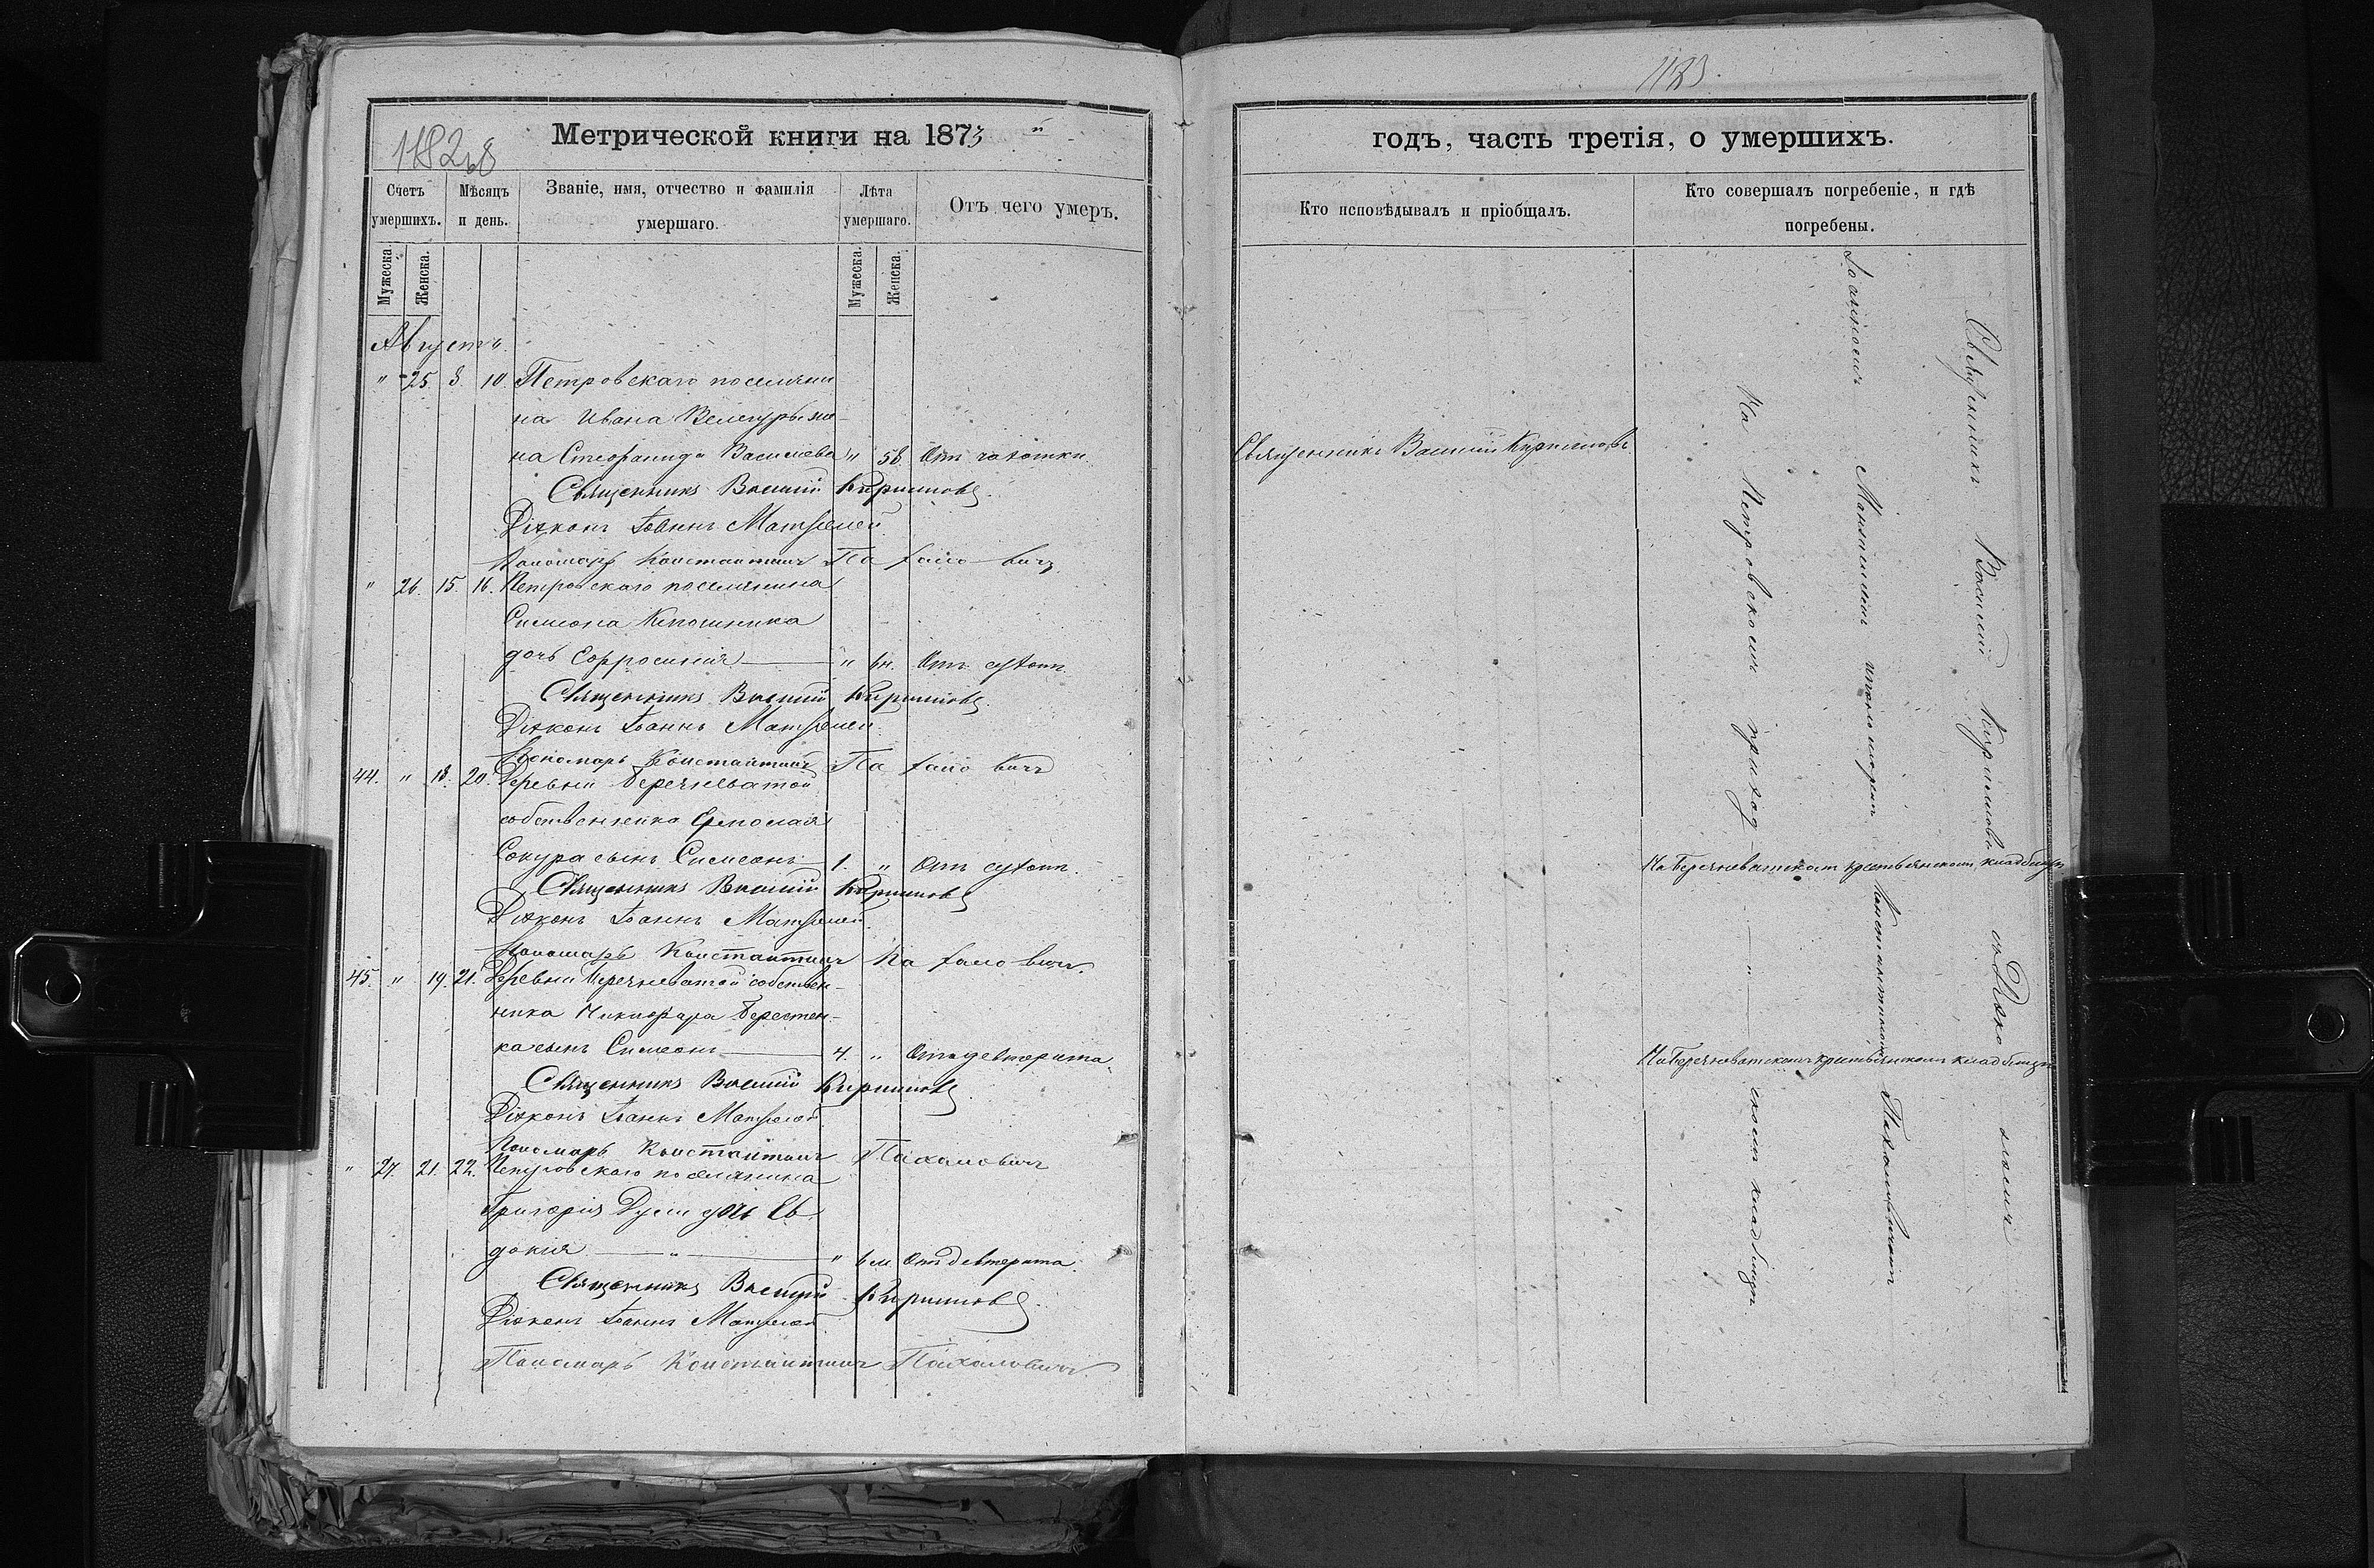 Метрической книги на 1873
Счетъ умершихъ.
Мѣсяцъ и день.
Званіе, имя, отчество и фамилія умершаго.
Лѣта умершаго.
Отъ чего умеръ.
Мужеска.
Женска.
Мужеска.
Женска.
Августъ.
" 25. 8. 10. Петровскаго поселяни
на Ивана Велегуры же-
на Стефанида Василиева " 58. Отъ чахотки.
Священникъ Василій Кириловъ
Діяконъ Іоаннъ
Пономарь Константинъ Пахаловичъ
" 26. 15. 16. Петровскаго поселянина
Симеона
дочь Ефросинія "
Священникъ Василій Кириловъ
Діяконъ Іоаннъ
Пономарь Константинъ Пахаловичъ
44. " 18. 20. Деревни Беречневатой
собственника Ермолая
Сокура сынъ Симеонъ 1. " Отъ сухотъ.
Священникъ Василій Кириловъ
Діяконъ Іоаннъ
Пономарь Константинъ Пахаловичъ.
45. " 19. 21. Деревни Беречневатой собствен-
ника Никифора Берестен-
ка сынъ Симеонъ 4. " Отъ дефтерита.
Священникъ Василій Кириловъ
Діяконъ Іоаннъ
Пономарь Константинъ Пахаловичъ
" 27. 21. 22. Петровскаго поселянина
Григорія дочь Ев
докія " " 6 м. Отъ дефтерита.
Священникъ Василій Кириловъ
Діяконъ Іоаннъ
Пономарь Константинъ Пахаловичъ
1183.
годъ, часть третія, о умершихъ.
Кто исповѣдывалъ и пріобщалъ.
Кто совершалъ погребеніе, и гдѣ погребены.
Священникъ Василій Кириловъ
Священникъ Василій Кириловъ съ Діякономъ
Іоанномъ и пономаремъ Константиномъ Пахаловичемъ
На Петровскомъ приход- " скомъ кладбищѣ.
На Беречневатскомъ крестьянскомъ кладбищѣ
На Беречневатскомъ крестьянскомъ кладбищѣ